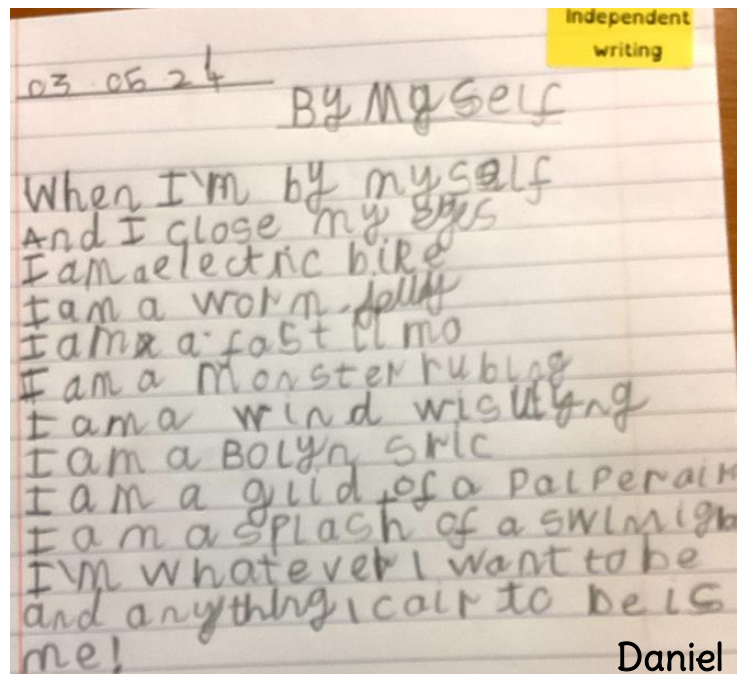 Independent
writing
03 05 24
By Myself
When I'm by myself
And I close my eyes
I am a electric bike
I am a worm jelly
I am a fast limo
I am a monster rubing
I am a wind wisulyng
I am a Bolyn sric
I am a glid of a palperair
I am a splash of a swimig
I'm whatever I want to be
and anything I cair to be is
me!
Daniel